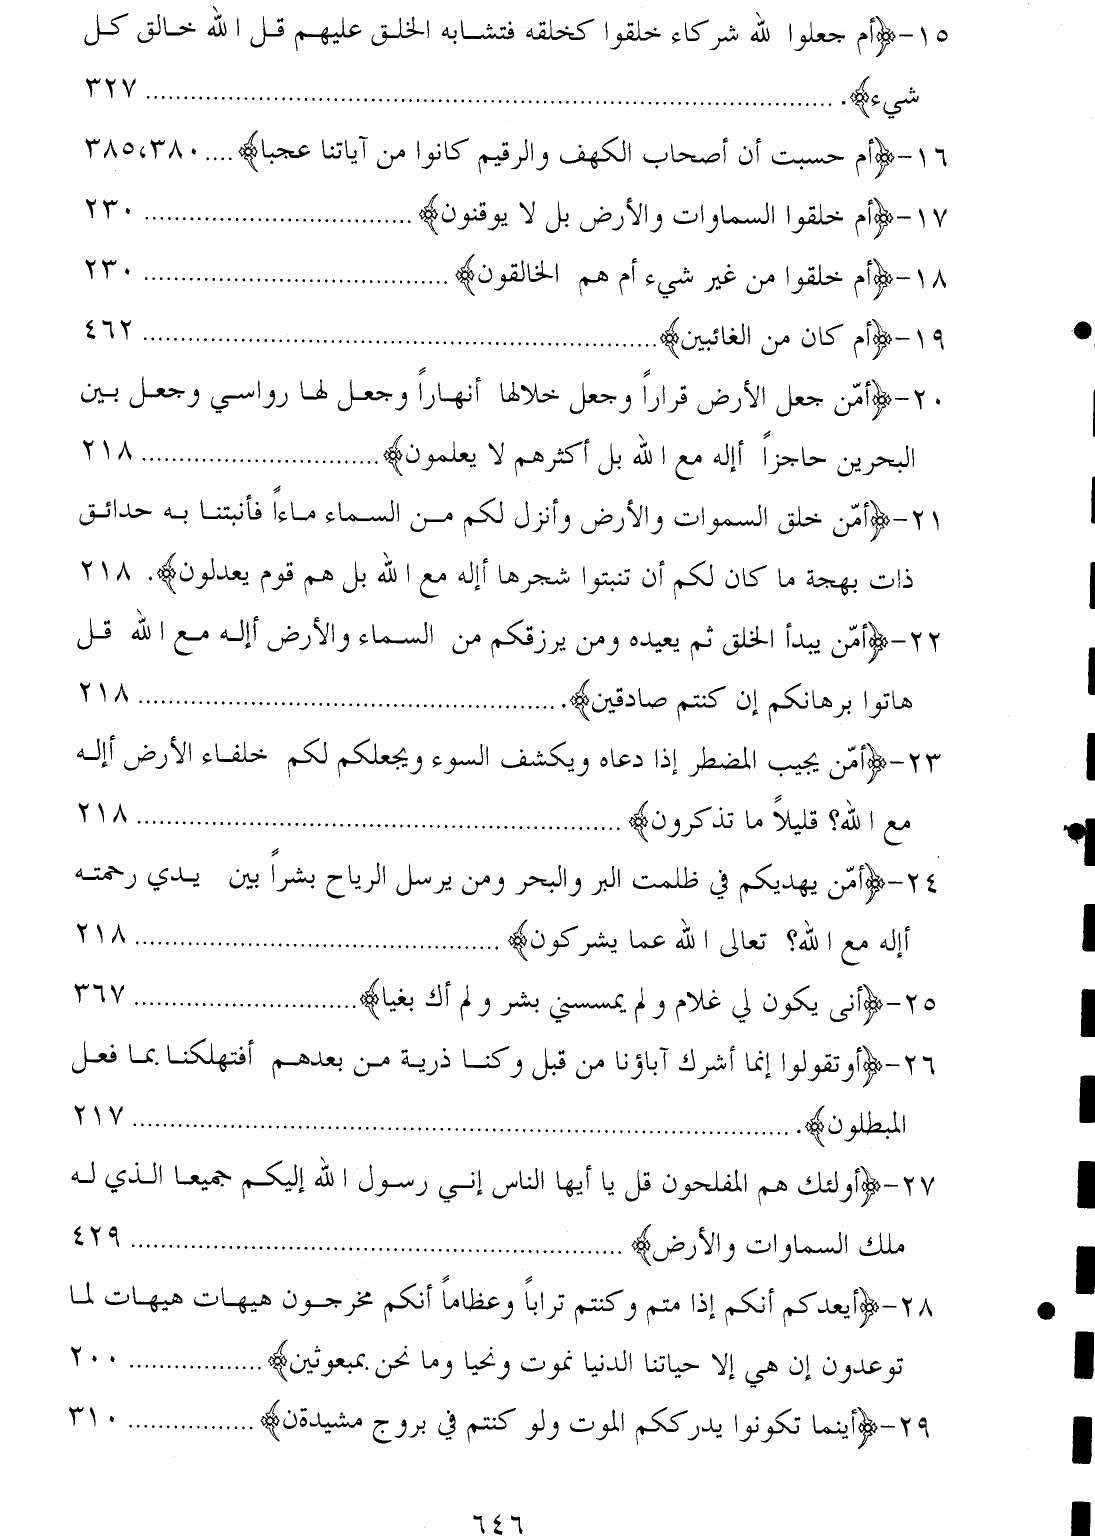 ١٥-﴿أم جعلوا لله شركاء خلقوا كخلقه فتشابه الخلق عليهم قل الله خالق كل
شيء﴾. ........ ٣٢٧
١٦-﴿أم حسبت أن أصحاب الكهف والرقيم كانوا من آياتنا عجبا﴾.... ٣٨٥،٣٨٠
١٧-﴿أم خلقوا السماوات والأرض بل لا يوقنون﴾........ ٢٣٠
١٨-﴿أم خلقوا من غير شيء أم هم الخالقون﴾........ ٢٣٠
١٩-﴿أم كان من الغائبين﴾........ ٤٦٢
٢٠-﴿أمّن جعل الأرض قراراً وجعل خلالها أنهاراً وجعل لها رواسي وجعل بين
البحرين حاجزاً أإله مع الله بل أكثرهم لا يعلمون﴾........ ٢١٨
٢١-﴿أمّن خلق السموات والأرض وأنزل لكم من السماء ماءاً فأنبتنا به حدائق
ذات بهجة ما كان لكم أن تنبتوا شجرها أإله مع الله بل هم قوم يعدلون﴾. ٢١٨
٢٢-﴿أمّن يبدأ الخلق ثم يعيده ومن يرزقكم من السماء والأرض أإله مع الله قل
هاتوا برهانكم إن كنتم صادقين﴾. ........ ٢١٨
٢٣-﴿أمّن يجيب المضطر إذا دعاه ويكشف السوء ويجعلكم لكم خلفاء الأرض أإله
مع الله؟ قليلاً ما تذكرون﴾ ........ ٢١٨
٢٤-﴿أمّن يهديكم في ظلمت البر والبحر ومن يرسل الرياح بشراً بين يدي رحمته
أإله مع الله؟ تعالى الله عما يشركون﴾ ........ ٢١٨
٢٥-﴿أنى يكون لي غلام و لم يمسسني بشر و لم أك بغيا﴾........ ٣٦٧
٢٦-﴿أوتقولوا إنما أشرك آباؤنا من قبل وكنا ذرية من بعدهم أفتهلكنا بما فعل
المبطلون﴾. ........ ٢١٧
٢٧-﴿أولئك هم المفلحون قل يا أيها الناس إني رسول الله إليكم جميعا الذي له
ملك السماوات والأرض﴾ ........ ٤٢٩
٢٨-﴿أيعدكم أنكم إذا متم وكنتم تراباً وعظاماً أنكم مخرجون هيهات هيهات لما
توعدون إن هي إلا حياتنا الدنيا نموت ونحيا وما نحن بمبعوثين﴾........ ٢٠٠
٢٩-﴿أينما تكونوا يدرككم الموت ولو كنتم في بروج مشيدةن﴾........ ٣١٠
٦٤٦